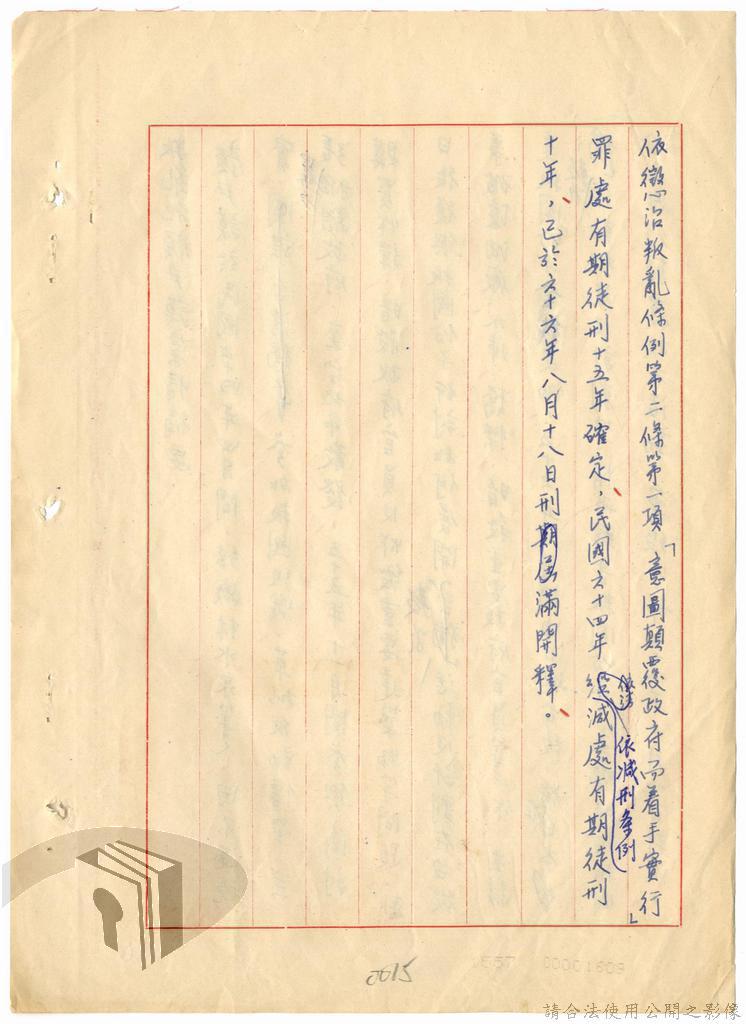 依懲治叛亂條例第二條第一項「意圖顛覆政府而着手實行」
罪處有期徒刑十五年確定,民國六十四年減處有期徒刑
依減刑条例
十年,已於六十六年八月十八日刑期屆滿開釋。
0015
00001609
請合法使用公開之影像